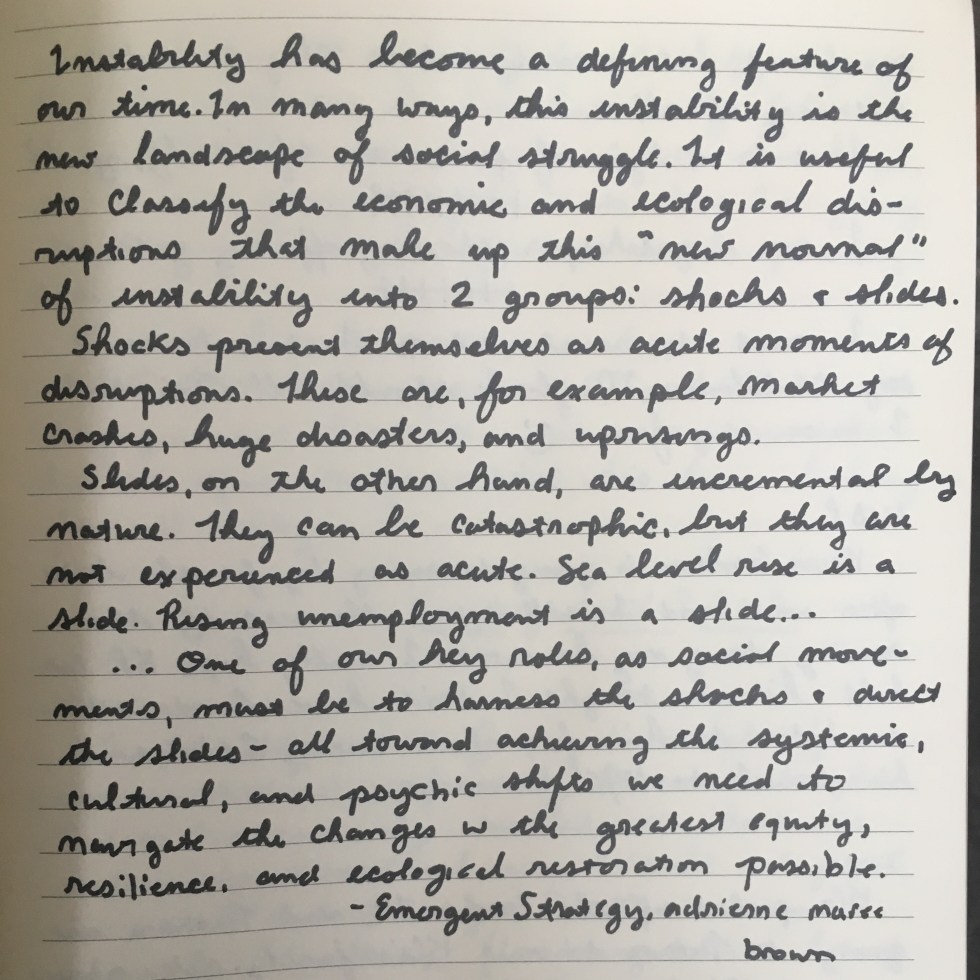 Instability has become a defining feature of
our time. In many ways, this instability is the
new landscape of social struggle. It is useful
to classify the economic and ecological dis-
ruptions that make up this "new normal"
of instability into 2 groups: shocks & slides.
Shocks present themselves as acute moments of
disruptions. These are, for example, market
crashes, huge disasters, and uprisings.
Slides, on the other hand, are incremental by
nature. They can be catastrophic, but they are
not experienced as acute. Sea level rise is a
slide. Rising unemployment is a slide...
... One of our key roles, as social move-
ments, must be to harness the shocks & direct
the slides - all toward achieving the systemic,
cultural, and psychic shifts we need to
navigate the changes w the greatest equity,
resilience, and ecological restoration possible.
- Emergent Strategy, adrienne maree
brown